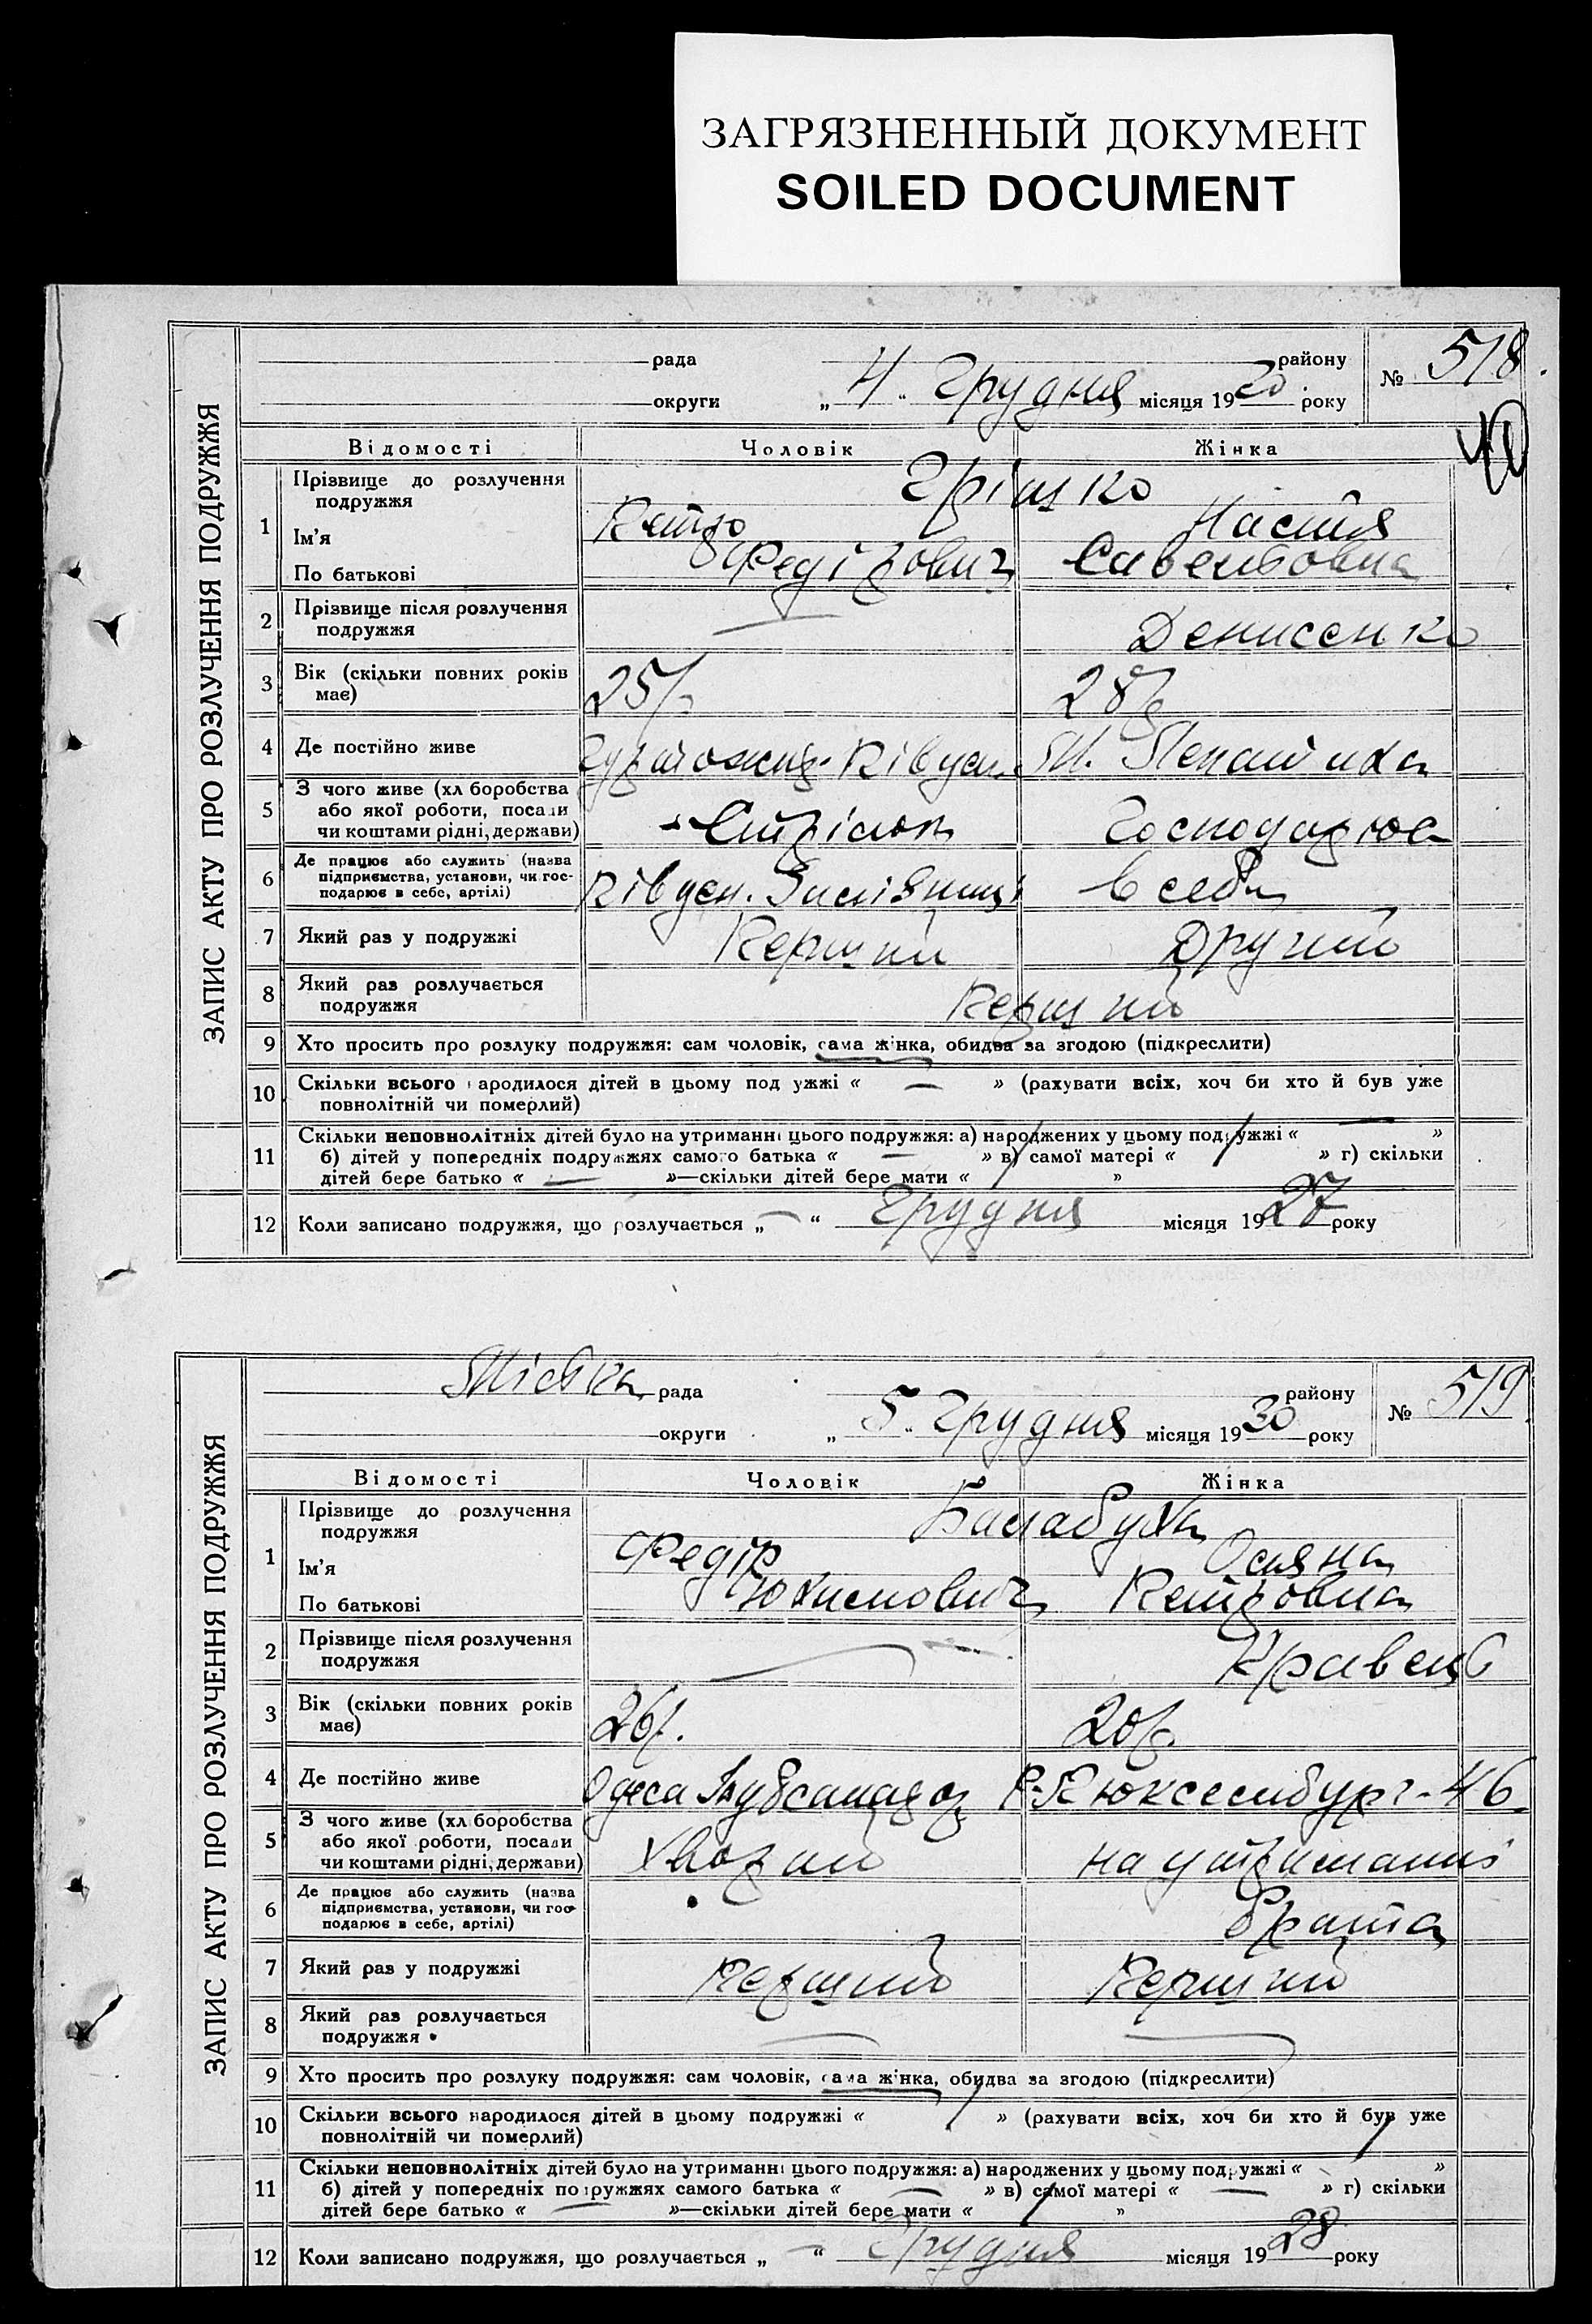 ЗАГРЯЗНЕННЫЙ ДОКУМЕНТ
SOILED DOCUMENT
ЗАПИС АКТУ ПРО РОЗЛУЧЕННЯ ПОДРУЖЖЯ
рада району № 518.
округи „4“ Грудня місяця 1930 року
Відомості Чоловік Жінка
1 Прізвище до розлучення подружжя Грішко
Ім'я Петро Настя
По батькові Федірович Савентовна
2 Прізвище після розлучення подружжя — Денисенко
3 Вік (скільки повних років має) 25 р. 28 р.
4 Де постійно живе
5 З чого живе (хліборобства
або якої роботи, посади
чи коштами рідні, держави) Стрілок Господарює
6 Де працює або служить (назва
підприємства, установи, чи гос-
подарює в себе, артілі) в себе
7 Який раз у подружжі Перший Другий
8 Який раз розлучається
подружжя Перший
9 Хто просить про розлуку подружжя: сам чоловік, сама жінка, обидва за згодою (підкреслити)
10 Скільки всього народилося дітей в цьому подружжі « — » (рахувати всіх, хоч би хто й був уже
повнолітній чи померлий)
11 Скільки неповнолітніх дітей було на утриманні цього подружжя: а) народжених у цьому подружжі « — »
б) дітей у попередніх подружжях самого батька « — » в) самої матері « / » г) скільки
дітей бере батько « — »—скільки дітей бере мати « / »
12 Коли записано подружжя, що розлучається „—“ Грудня місяця 1927 року
ЗАПИС АКТУ ПРО РОЗЛУЧЕННЯ ПОДРУЖЖЯ
Міська рада району № 519.
округи „5“ Грудня місяця 1930 року
Відомості Чоловік Жінка
1 Прізвище до розлучення подружжя Балабуха
Ім'я Федір Оляна
По батькові Юхимович Петровна
2 Прізвище після розлучення подружжя — Кравець
3 Вік (скільки повних років має) 26 р. 20 р.
4 Де постійно живе Одеса Р.-Люксембург-46
5 З чого живе (хліборобства
або якої роботи, посади
чи коштами рідні, держави) Хворий на утриманні
6 Де працює або служить (назва
підприємства, установи, чи гос-
подарює в себе, артілі) брата
7 Який раз у подружжі Перший Перший
8 Який раз розлучається
подружжя — —
9 Хто просить про розлуку подружжя: сам чоловік, сама жінка, обидва за згодою (підкреслити)
10 Скільки всього народилося дітей в цьому подружжі « / » (рахувати всіх, хоч би хто й був уже
повнолітній чи померлий)
11 Скільки неповнолітніх дітей було на утриманні цього подружжя: а) народжених у цьому подружжі « »
б) дітей у попередніх подружжях самого батька « — » в) самої матері « — » г) скільки
дітей бере батько « — »—скільки дітей бере мати « / »
12 Коли записано подружжя, що розлучається „—“ Грудня місяця 1928 року